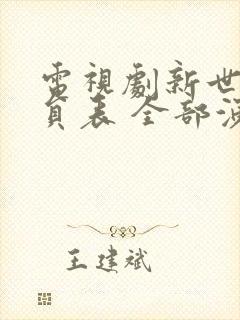 電視劇新世
員表 全部演
王建斌